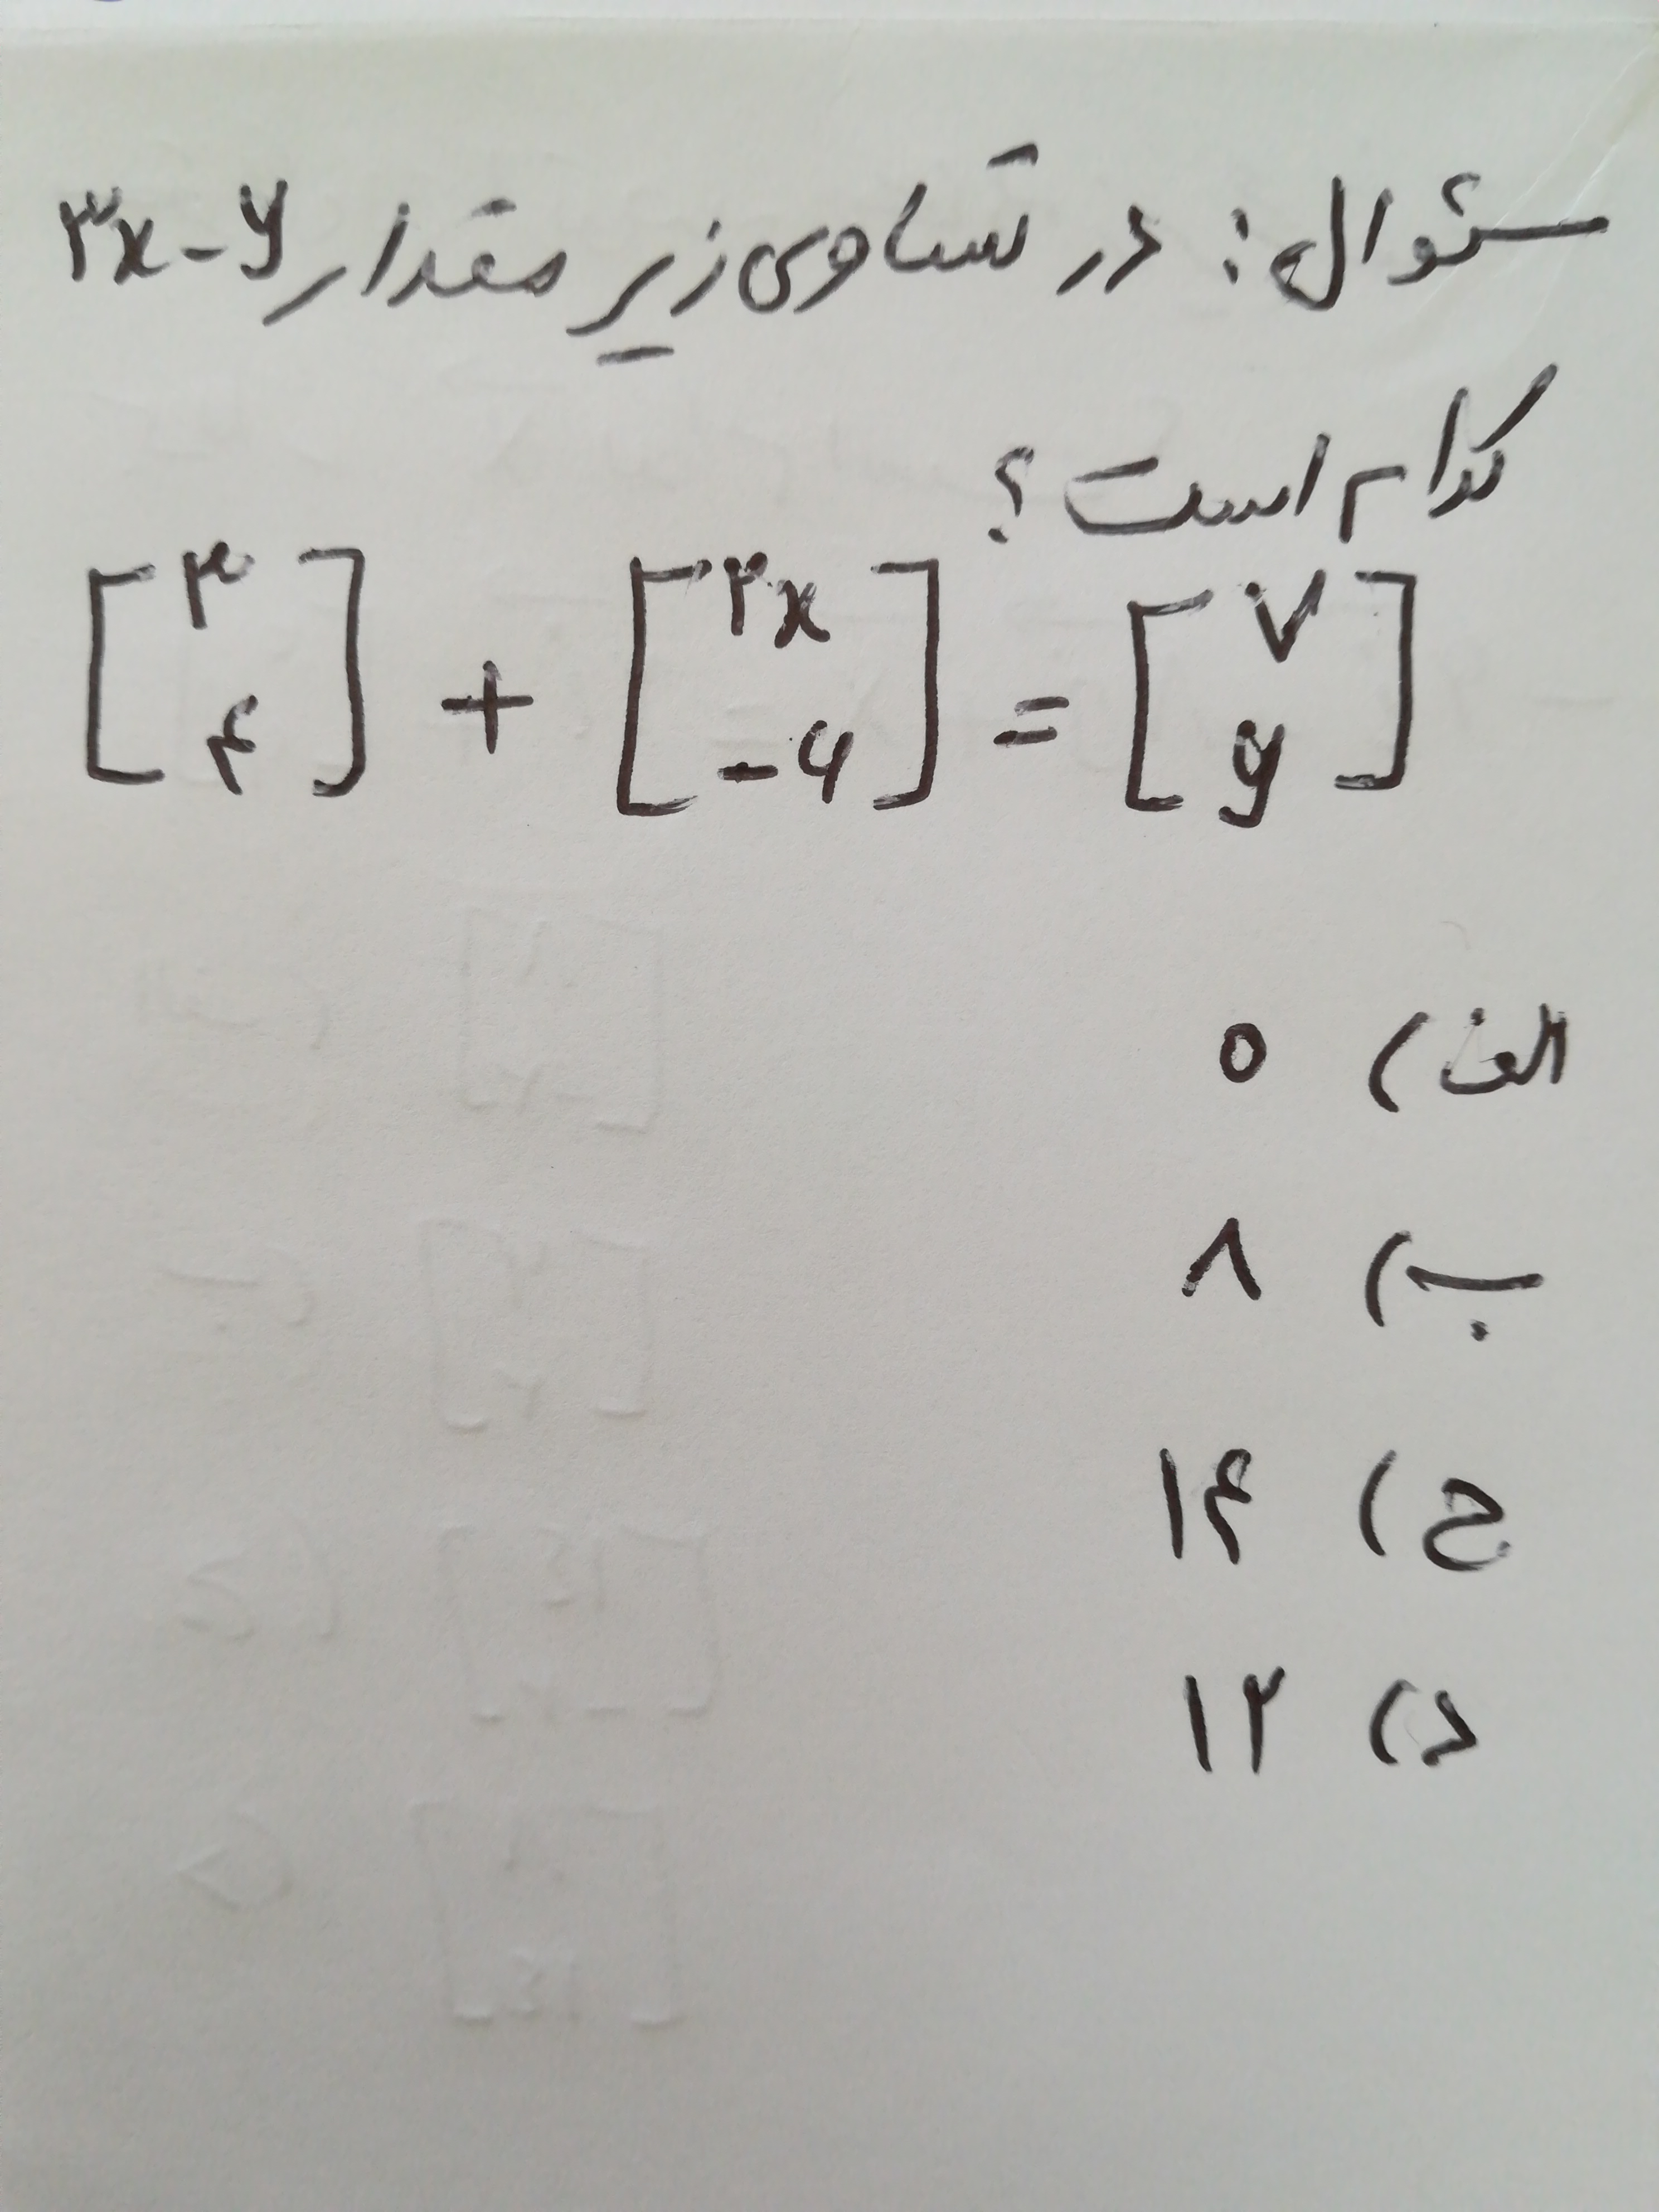 سئوال: در تساوی زیر مقدار ۳x-y
کدام است؟
[۳ ۴] + [۲x -۶] = [۷ y]
الف) ۵
ب) ۸
ج) ۱۴
د) ۱۲